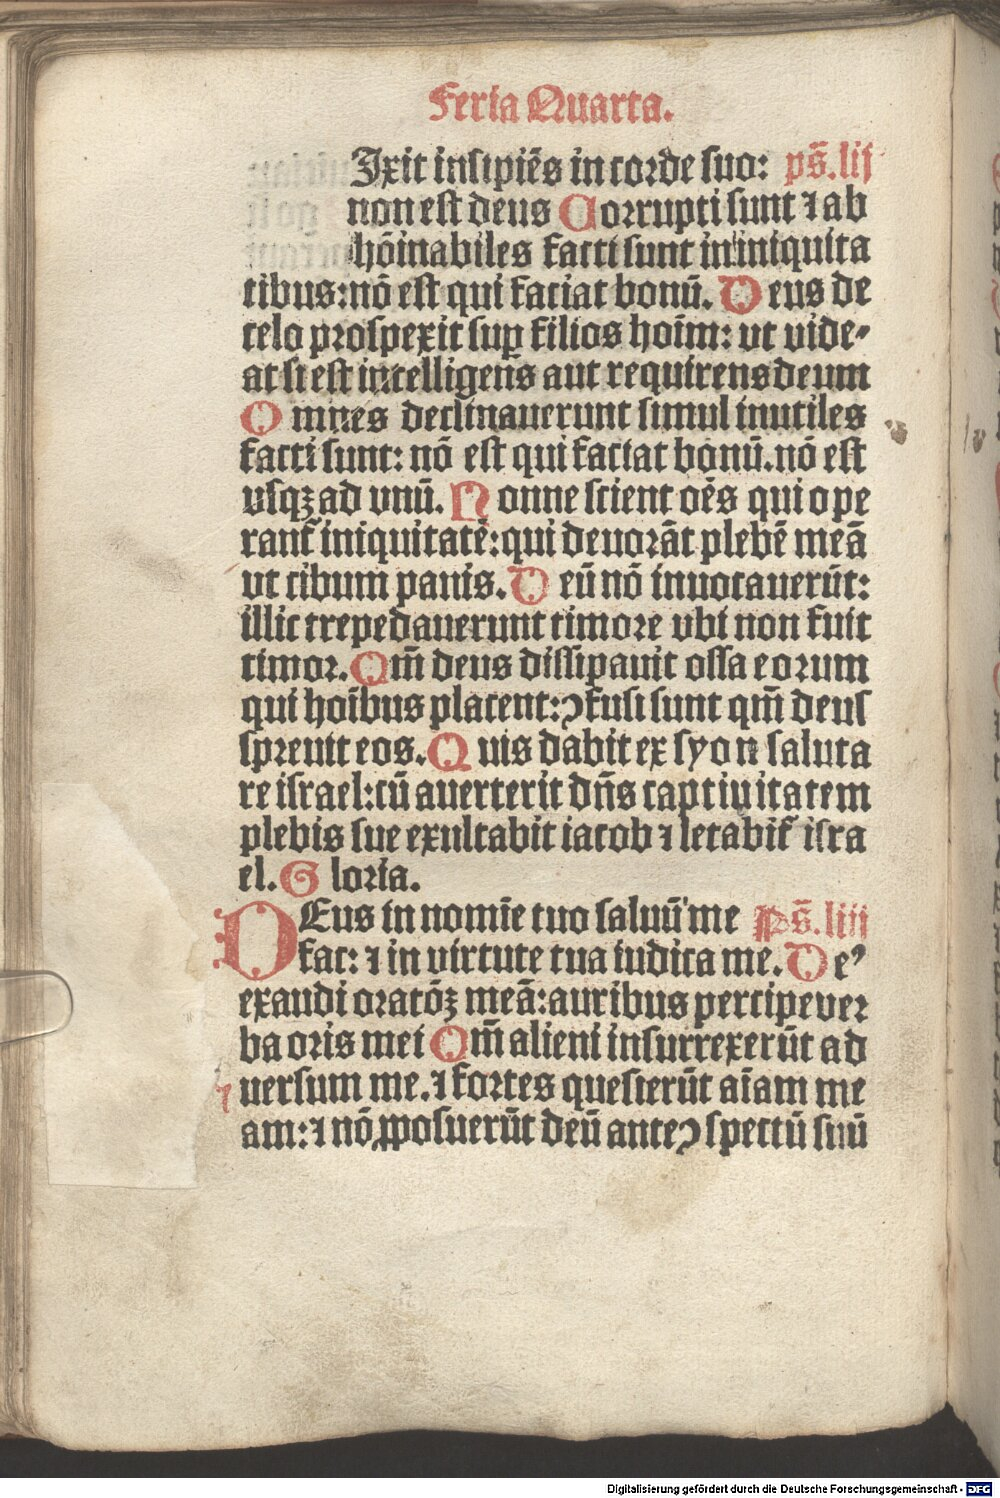 Feria Quarta.
Ixit insipiēs in corde suo: ps̄. lij
non est deus Corrupti sunt ⁊ ab
hōinabiles facti sunt in iniquita
tibus: nō est qui faciat bonū. Deus de
celo prospexit suꝑ filios hoīm: vt vide⸗
at si est intelligens aut requirens deum
Omnes declinauerunt simul inutiles
facti sunt: nō est qui faciat bonū. nō est
vsqꝫ ad vnū. Nonne scient oēs qui ope
rant᷑ iniquitatē: qui deuorāt plebē meā
vt cibum panis. Deū nō inuocauerūt:
illic trepedauerunt timore vbi non fuit
timor. Qm̄ deus dissipauit ossa eorum
qui hoībus placent: ꝯfusi sunt qm̄ deus
spreuit eos. Quis dabit ex syon saluta
re israel: cū auerterit dn̄s captiuitatem
plebis sue exultabit iacob ⁊ letabit᷑ isra
el. Gloria.
DEus in nomīe tuo saluū me Ps̄. liij
fac: ⁊ in virtute tua iudica me. Deꝰ
exaudi oratōꝫ meā: auribus percipe ver
ba oris mei Qm̄ alieni insurrexerūt ad
uersum me. ⁊ fortes quesierūt aīam me
am: ⁊ nō ꝓposuerūt deū ante ꝯspectū suū
Digitalisierung gefördert durch die Deutsche Forschungsgemeinschaft - DFG